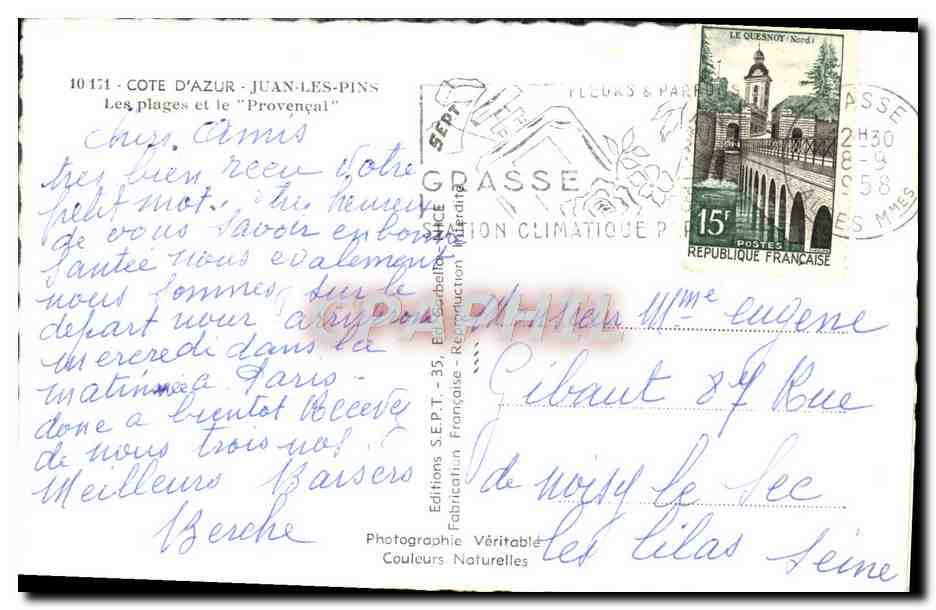 10 171 - COTE D'AZUR - JUAN-LES-PINS
Les plages et le "Provençal"
Chers Amis
tres bien recu Votre
petit mot. tres heureux
de vous Savoir en bonne
Santée nous egalement
nous sommes sur le
depart nour arrivons
mercredi dans la
matinnée a Paris -
donc a bientot Recevez
de nous trois nos
Meilleurs Baisers
Berche
Editions S.E.P.T. - 35, Ed. Corbella, NICE
Fabrication Française - Reproduction Interdite
Photographie Véritable
Couleurs Naturelles
SEPT
FLEURS & PARFUMS
GRASSE
STATION CLIMATIQUE P
GRASSE
12H30
8-9
1958
ES MMES
LE QUESNOY (Nord)
15F
POSTES
REPUBLIQUE FRANÇAISE
CPAPHIL
Monsieur Mme eugene
Gibaut 87 Rue
de noisy le Sec
les lilas Seine